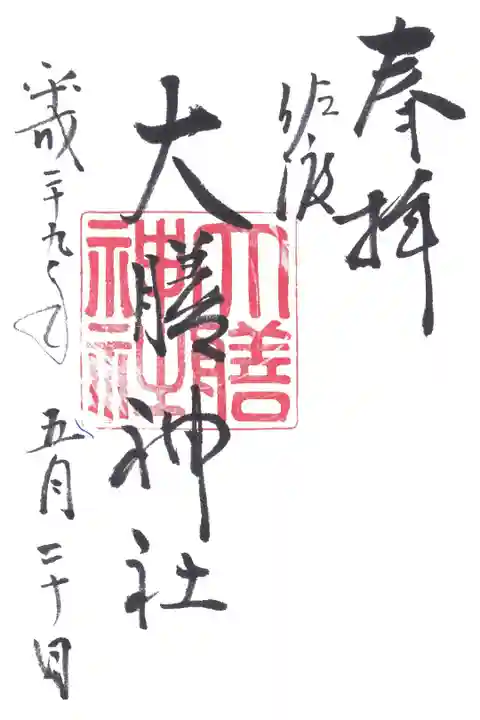 奉拝
佐渡
大膳神社
大膳神社
平成二十九年
五月二十日